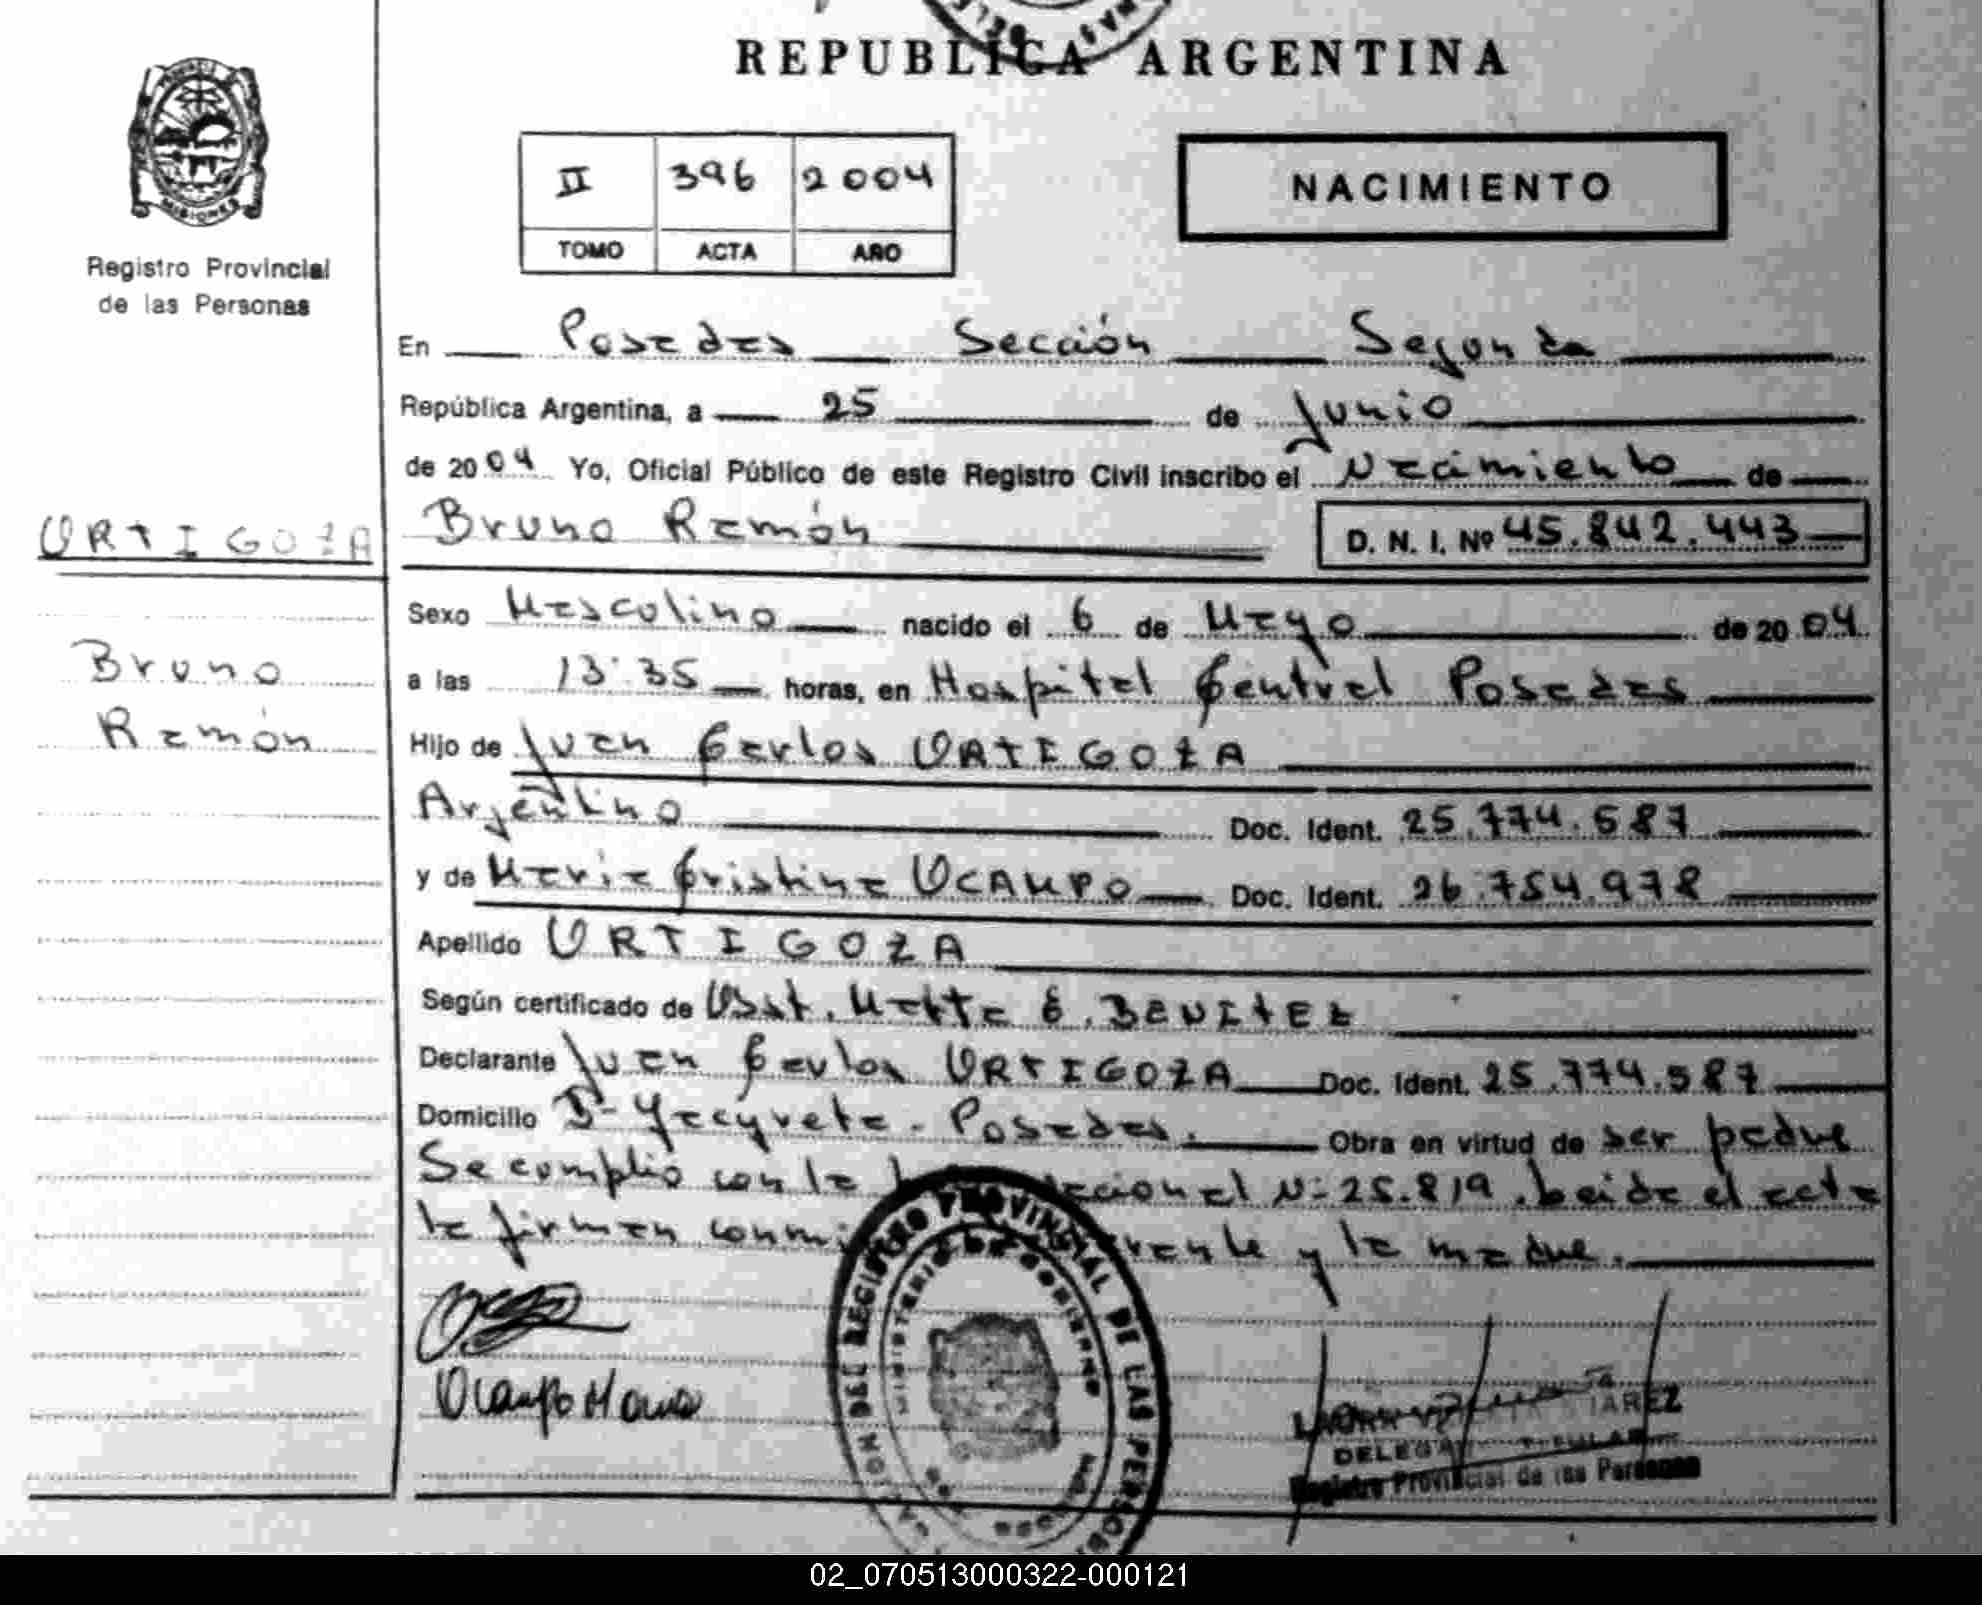 REPUBLICA ARGENTINA
MISIONES
Registro Provincial
de las Personas
II 396 2004
TOMO ACTA AÑO
NACIMIENTO
En Posadas Sección Segunda
República Argentina, a 25 de Junio
de 2004 Yo, Oficial Público de este Registro Civil inscribo el Nacimiento de
ORTIGOZA Bruno Ramón D. N. I. Nº 45.842.443
Sexo Masculino nacido el 6 de Mayo de 2004
Bruno
a las 13:35 horas, en Hospital Central Posadas
Ramón
Hijo de Juan Carlos ORTIGOZA
Argentino Doc. Ident. 25.774.587
y de Maria Cristina OCAMPO Doc. Ident. 26.754.978
Apellido ORTIGOZA
Según certificado de Obst. E. BENITEZ
Declarante Juan Carlos ORTIGOZA Doc. Ident. 25.774.587
Domicilio Bº Yacyreta - Posadas. Obra en virtud de ser padre
Se cumplió con la Nacional Nº 25.819. Leida el acta
la firman y la madre.
Ocampo Maria
REGISTRO PROVINCIAL DE LAS
MINISTERIO DE GOBIERNO
DELEGADA TITULAR
Registro Provincial de las Personas
02_070513000322-000121